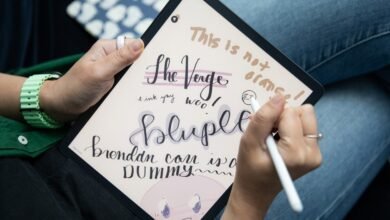 This is not
orange!
The Verge
ink yay woo!
blurple
brenddn carr is a
DUMMY